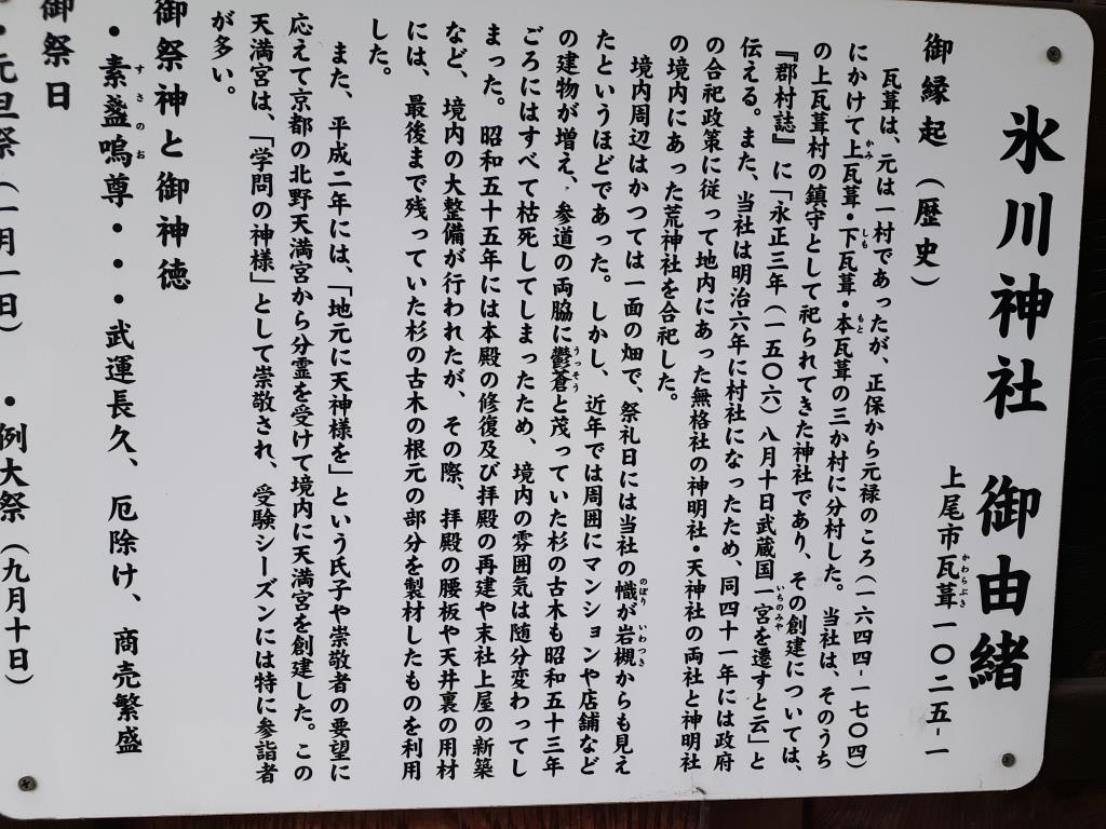 氷川神社 御由緒
上尾市瓦葺一〇二五-一
御縁起（歴史）
瓦葺は、元は一村であったが、正保から元禄のころ（一六四四-一七〇四）
にかけて上瓦葺・下瓦葺・本瓦葺の三か村に分村した。当社は、そのうち
の上瓦葺村の鎮守として祀られてきた神社であり、その創建については、
『郡村誌』に「永正三年（一五〇六）八月十日武蔵国一宮を遷すと云」と
伝える。また、当社は明治六年に村社になったため、同四十一年には政府
の合祀政策に従って地内にあった無格社の神明社・天神社の両社と神明社
の境内にあった荒神社を合祀した。
境内周辺はかつては一面の畑で、祭礼日には当社の幟が岩槻からも見え
たというほどであった。しかし、近年では周囲にマンションや店舗など
の建物が増え、参道の両脇に鬱蒼と茂っていた杉の古木も昭和五十三年
ごろにはすべて枯死してしまったため、境内の雰囲気は随分変わってし
まった。昭和五十五年には本殿の修復及び拝殿の再建や末社上屋の新築
など、境内の大整備が行われたが、その際、拝殿の腰板や天井裏の用材
には、最後まで残っていた杉の古木の根元の部分を製材したものを利用
した。
また、平成二年には、「地元に天神様を」という氏子や崇敬者の要望に
応えて京都の北野天満宮から分霊を受けて境内に天満宮を創建した。この
天満宮は、「学問の神様」として崇敬され、受験シーズンには特に参詣者
が多い。
御祭神と御神徳
・素盞嗚尊・・・武運長久、厄除け、商売繁盛
御祭日
・元旦祭（一月一日） ・例大祭（九月十日）